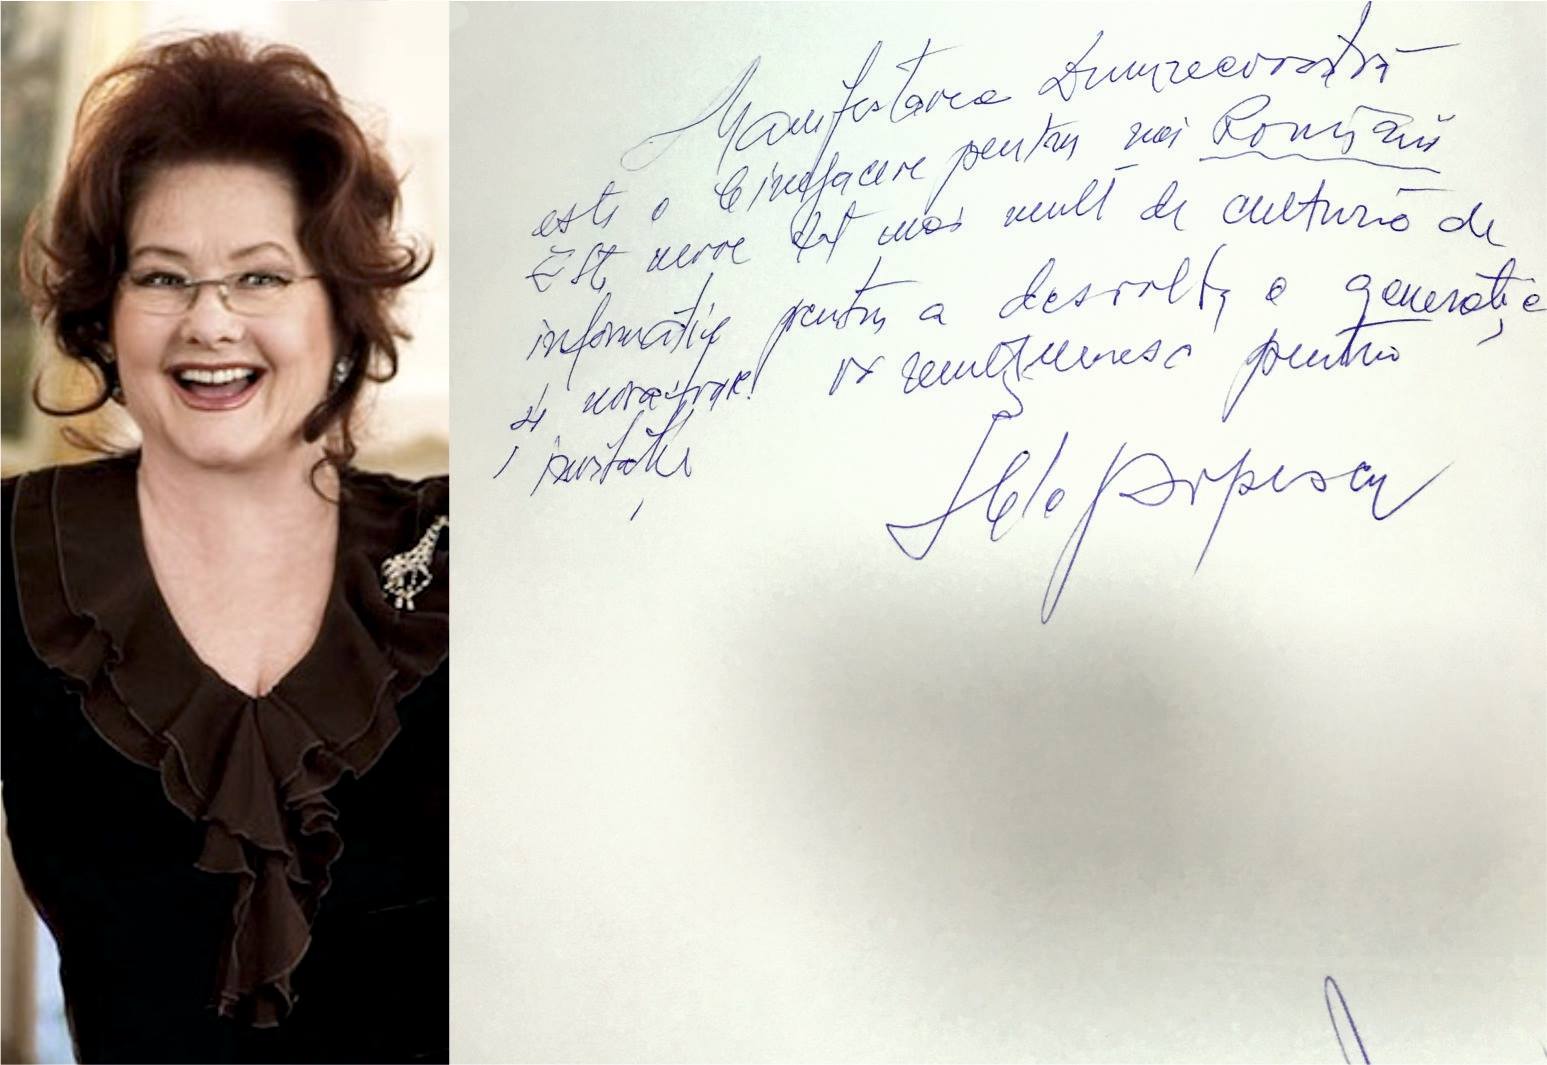 Manifestarea Dumneavoastră
este o binefacere pentru noi Românii
Este nevoe cât mai mult de cultură de
informație pentru a desvolta o generație
și noroc vă mulțumesc pentru
invitație
Popescu